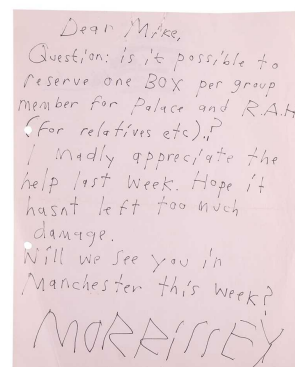 Dear Mike,
Question: is it possible to
reserve one BOX per group
member for Palace and R.A.H
(For relatives etc).?
I madly appreciate the
help last week. Hope it
hasnt left too much
damage.
Will we see you in
Manchester this week?
MORRISSEY